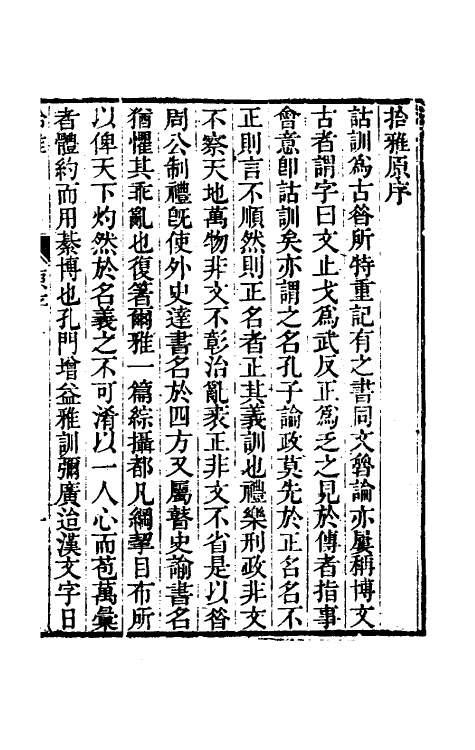 拾雅原序
詁訓為古昝所特重記有之書同文魯論亦屢稱博文
古者謂字曰文止戈為武反正為乏之見於傳者指事
會意卽詁訓矣亦謂之名孔子論政莫先於正名名不
正則言不順然則正名者正其義訓也禮樂刑政非文
不察天地萬物非文不彰治亂衺正非文不省是以昝
周公制禮旣使外史達書名於四方又屬瞽史諭書名
猶懼其乖亂也復箸爾雅一篇綜攝都凡綱挈目布所
以俾天下灼然於名義之不可淆以一人心而苞萬彙
者體約而用綦博也孔門增益雅訓彌廣迨漢文字日
拾雅 原序 一